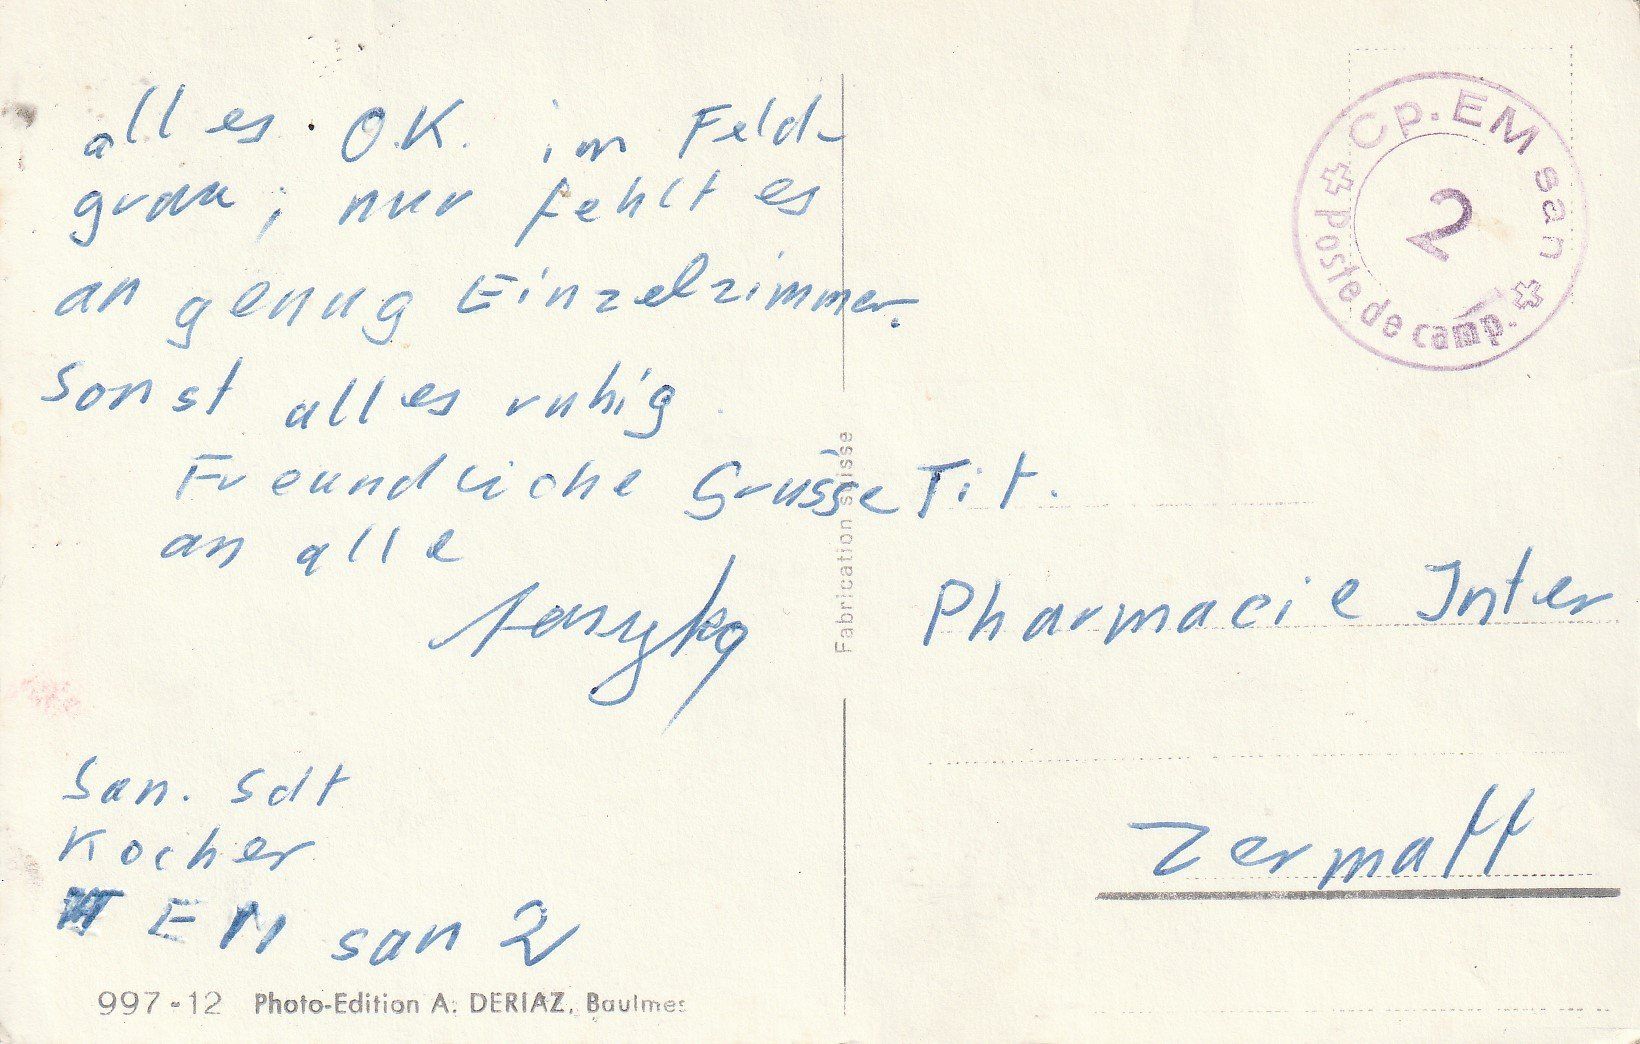 alles O.K. im Feld-
grau; nur fehlt es
an genug Einzelzimmer.
Sonst alles ruhig
Freundliche Grüsse
an alle
San. Sdt
Kocher
EM san 2
997-12 Photo-Edition A. DERIAZ, Baulmes
Fabrication suisse
Cp. EM san
2
poste de camp.
Tit.
Pharmacie Inter
Zermatt